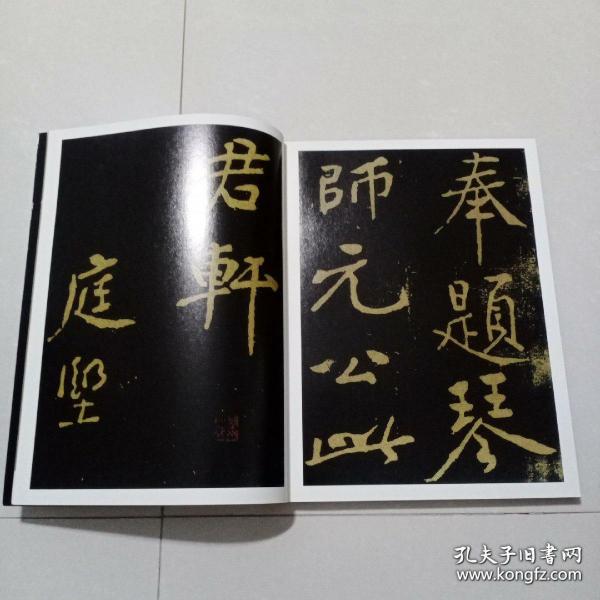 奉題琴
師元公此
君軒
庭堅
孔夫子旧书网
www.kongfz.com